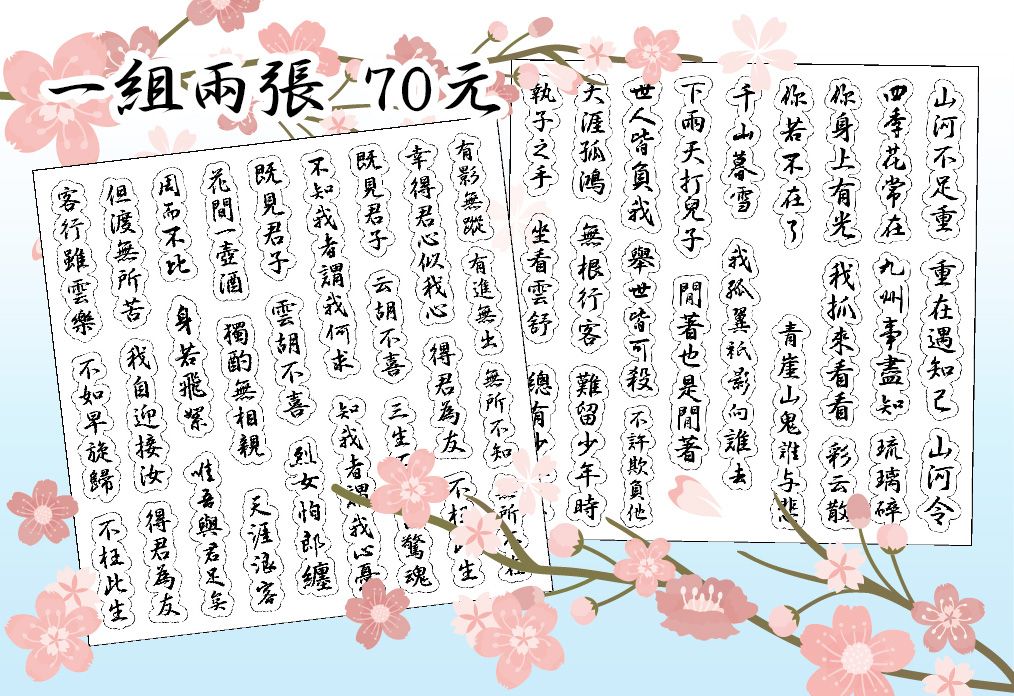 一組兩張 70元
山河不足重 重在遇知己 山河令
四季花常在 九州事盡知 琉璃碎
你身上有光 我抓來看看 彩云散
你若不在了 青崖山鬼誰与悲
千山暮雪 我孤翼祇影向誰去
下雨天打兒子 閒著也是閒著
世人皆負我 舉世皆可殺 不許欺負他
天涯孤鴻 無根行客 難留少年時
執子之手 坐看雲舒 總有少
有影無蹤 有進無出 無所不知 所
幸得君心似我心 得君為友 不生
既見君子 云胡不喜 三生 驚魂
不知我者謂我何求 知我者謂我心憂
既見君子 雲胡不喜 烈女怕郎纏
花間一壺酒 獨酌無相親 天涯浪客
周而不比 身若飛絮 唯吾與君足矣
但渡無所苦 我自迎接汝 得君為友
客行雖雲樂 不如早旋歸 不枉此生